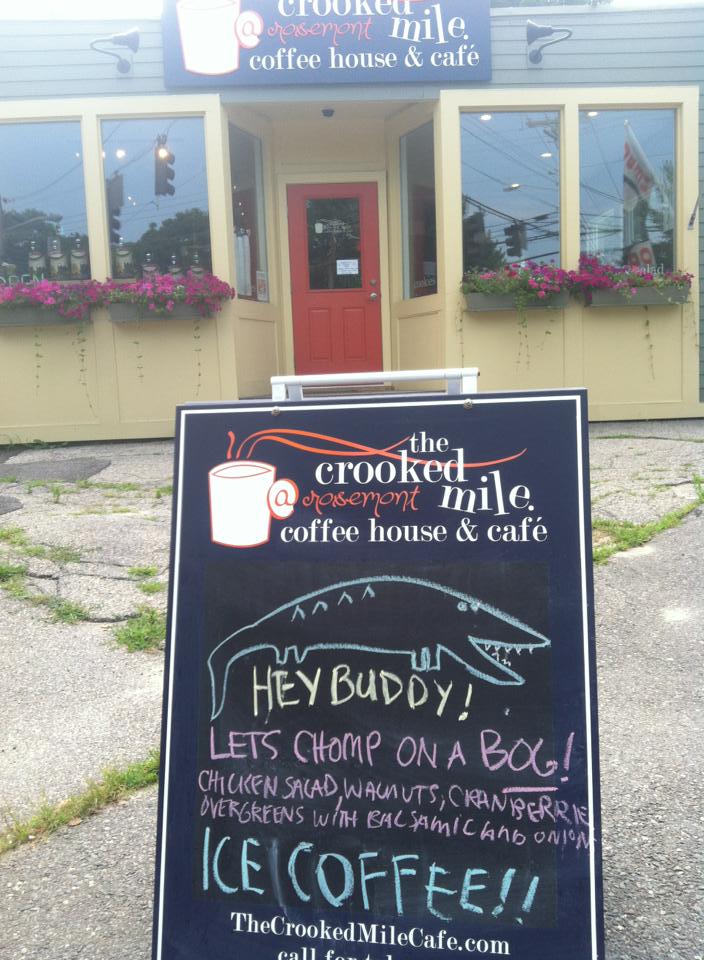 crooked
@ rosemont mile.
coffee house & café
OPEN
the
crooked
@ rosemont mile.
coffee house & café
HEY BUDDY!
LETS CHOMP ON A BOG!
CHICKEN SALAD, WALNUTS, CRANBERRIE
OVERGREENS WITH BALSAMIC AND ONION
ICE COFFEE!!
TheCrookedMileCafe.com
call for